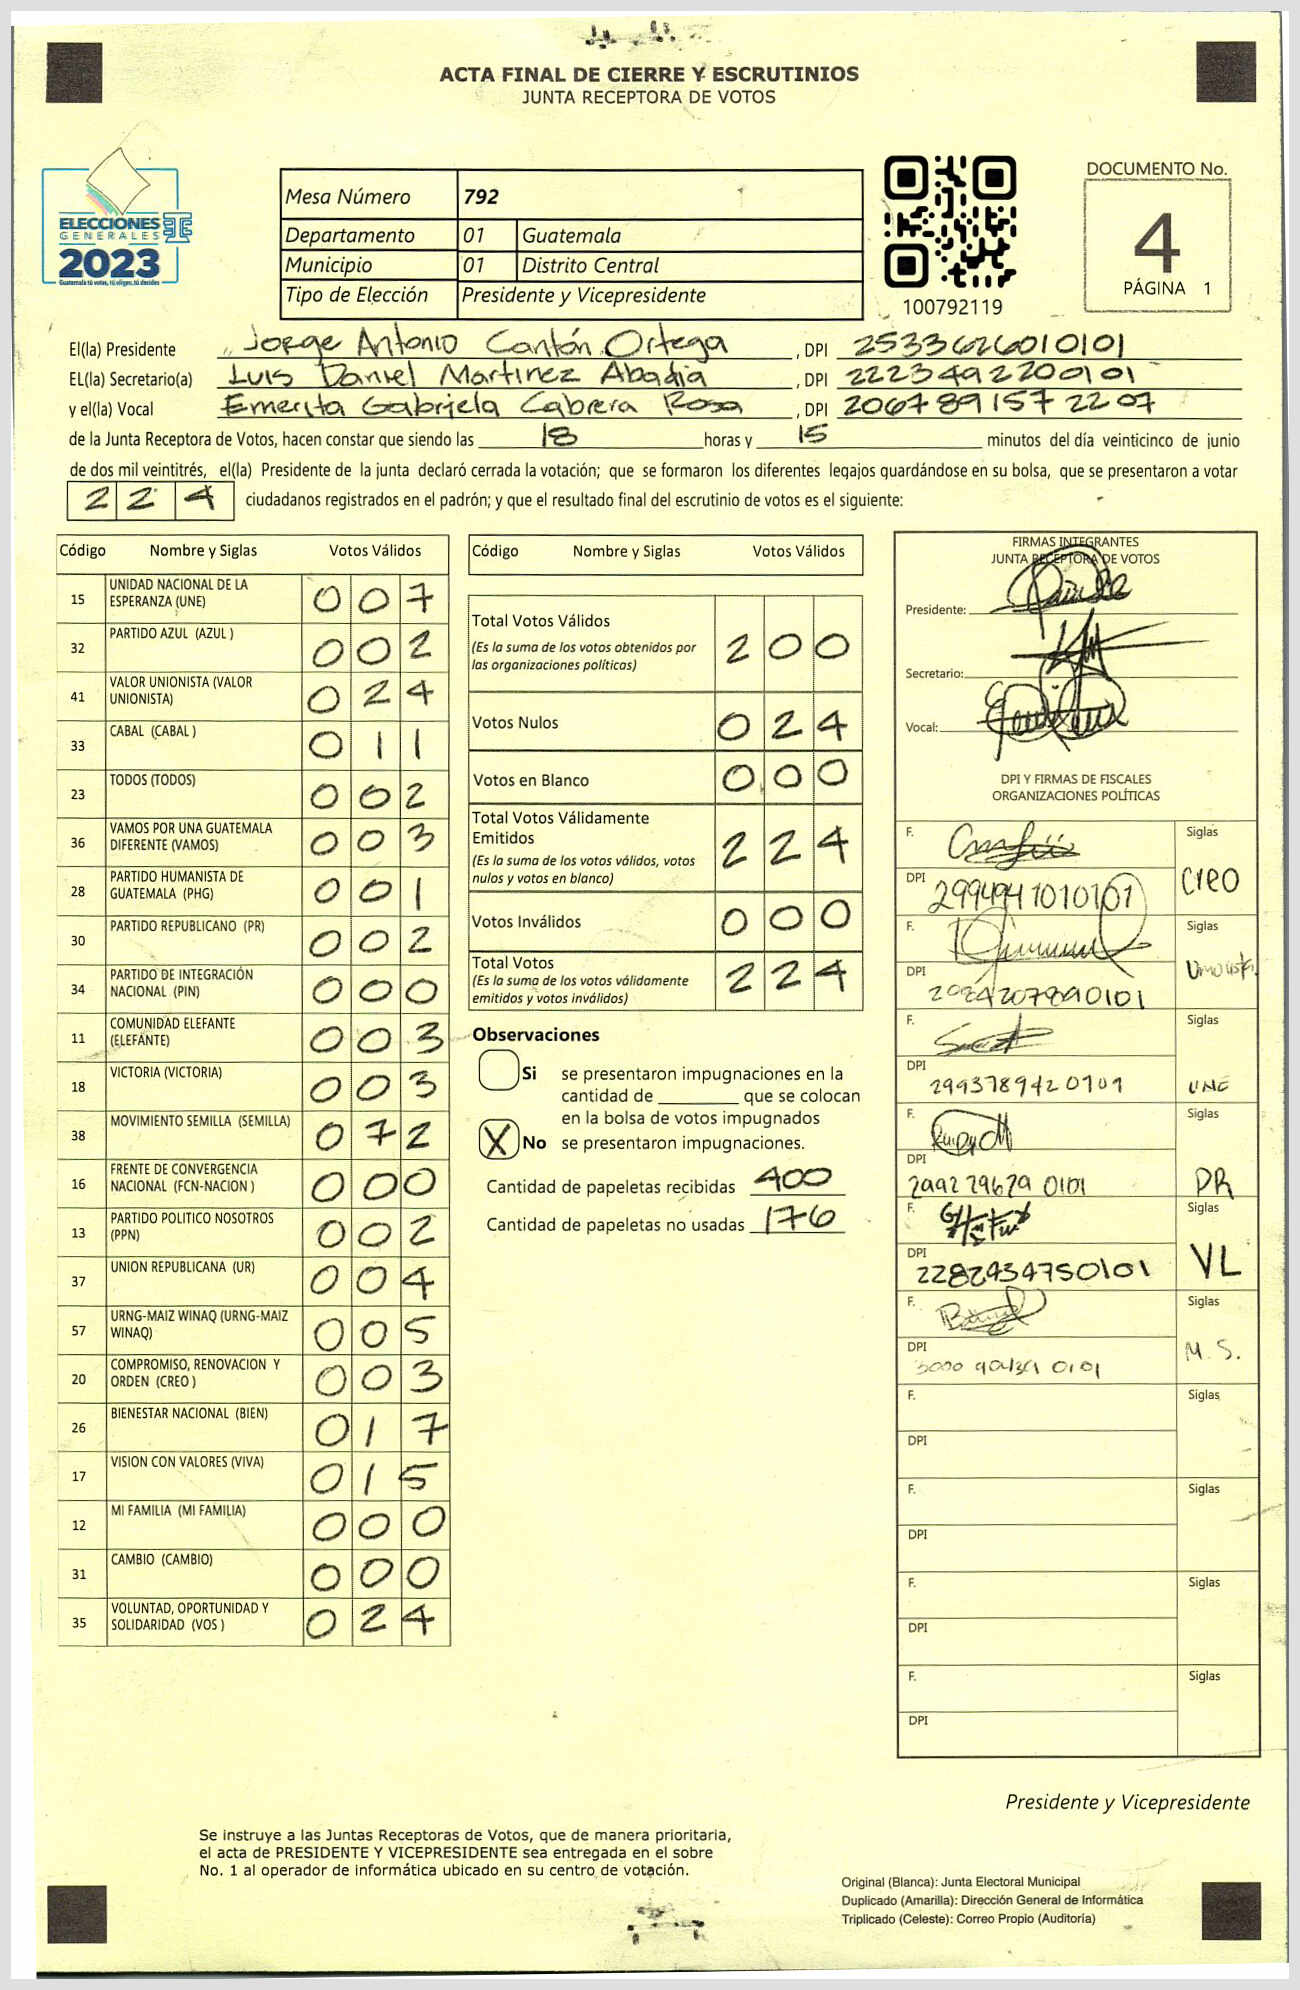 ACTA FINAL DE CIERRE Y ESCRUTINIOS
JUNTA RECEPTORA DE VOTOS
ELECCIONES
GENERALES
2023
Guatemala tú votas, tú eliges, tú decides
Mesa Número 792
Departamento 01 Guatemala
Municipio 01 Distrito Central
Tipo de Elección Presidente y Vicepresidente
100792119
DOCUMENTO No.
4
PÁGINA 1
El(la) Presidente Jorge Antonio Cantón Ortega, DPI 2533626010101
EL(la) Secretario(a) Luis Daniel Martinez Abadia, DPI 2223492200101
y el(la) Vocal Emerita Gabriela Cabrera Rosa, DPI 2067891572207
de la Junta Receptora de Votos, hacen constar que siendo las 18 horas y 15 minutos del día veinticinco de junio
de dos mil veintitrés, el(la) Presidente de la junta declaró cerrada la votación; que se formaron los diferentes legajos guardándose en su bolsa, que se presentaron a votar
224 ciudadanos registrados en el padrón; y que el resultado final del escrutinio de votos es el siguiente:
Código Nombre y Siglas Votos Válidos
15 UNIDAD NACIONAL DE LA ESPERANZA (UNE) 007
32 PARTIDO AZUL (AZUL ) 002
41 VALOR UNIONISTA (VALOR UNIONISTA) 024
33 CABAL (CABAL ) 011
23 TODOS (TODOS) 002
36 VAMOS POR UNA GUATEMALA DIFERENTE (VAMOS) 003
28 PARTIDO HUMANISTA DE GUATEMALA (PHG) 001
30 PARTIDO REPUBLICANO (PR) 002
34 PARTIDO DE INTEGRACIÓN NACIONAL (PIN) 000
11 COMUNIDAD ELEFANTE (ELEFANTE) 003
18 VICTORIA (VICTORIA) 003
38 MOVIMIENTO SEMILLA (SEMILLA) 072
16 FRENTE DE CONVERGENCIA NACIONAL (FCN-NACION ) 000
13 PARTIDO POLITICO NOSOTROS (PPN) 002
37 UNION REPUBLICANA (UR) 004
57 URNG-MAIZ WINAQ (URNG-MAIZ WINAQ) 005
20 COMPROMISO, RENOVACION Y ORDEN (CREO ) 003
26 BIENESTAR NACIONAL (BIEN) 017
17 VISION CON VALORES (VIVA) 015
12 MI FAMILIA (MI FAMILIA) 000
31 CAMBIO (CAMBIO) 000
35 VOLUNTAD, OPORTUNIDAD Y SOLIDARIDAD (VOS ) 024
Código Nombre y Siglas Votos Válidos
Total Votos Válidos 200
(Es la suma de los votos obtenidos por
las organizaciones políticas)
Votos Nulos 024
Votos en Blanco 000
Total Votos Válidamente
Emitidos 224
(Es la suma de los votos válidos, votos
nulos y votos en blanco)
Votos Inválidos 000
Total Votos 224
(Es la suma de los votos válidamente
emitidos y votos inválidos)
Observaciones
Si se presentaron impugnaciones en la
cantidad de ________ que se colocan
en la bolsa de votos impugnados
X No se presentaron impugnaciones.
Cantidad de papeletas recibidas 400
Cantidad de papeletas no usadas 176
FIRMAS INTEGRANTES
JUNTA RECEPTORA DE VOTOS
Presidente:
Secretario:
Vocal:
DPI Y FIRMAS DE FISCALES
ORGANIZACIONES POLÍTICAS
F. Siglas
DPI Creo
F. Siglas
DPI
F. Siglas
DPI 2993789420101 UNE
F. Siglas
DPI 2992296290101 PR
F. Siglas
DPI 2282934750101 VL
F. Siglas
DPI M.S.
F. Siglas
DPI
F. Siglas
DPI
F. Siglas
DPI
F. Siglas
DPI
Presidente y Vicepresidente
Se instruye a las Juntas Receptoras de Votos, que de manera prioritaria,
el acta de PRESIDENTE Y VICEPRESIDENTE sea entregada en el sobre
No. 1 al operador de informática ubicado en su centro de votación.
Original (Blanca): Junta Electoral Municipal
Duplicado (Amarilla): Dirección General de Informática
Triplicado (Celeste): Correo Propio (Auditoría)